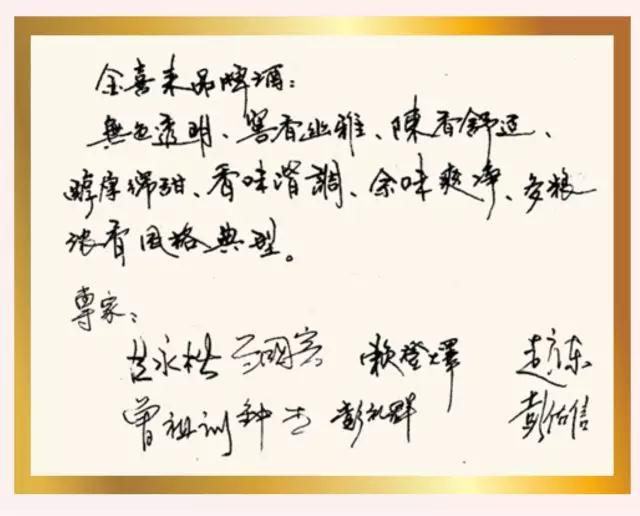 金喜来品牌酒：
無色透明、窖香幽雅、陳香舒适、
醇厚绵甜、香味谐調、余味爽净、多粮
浓香风格典型。
專家：
赖登燡 赵东
曾祖训 钟杰 彭礼群